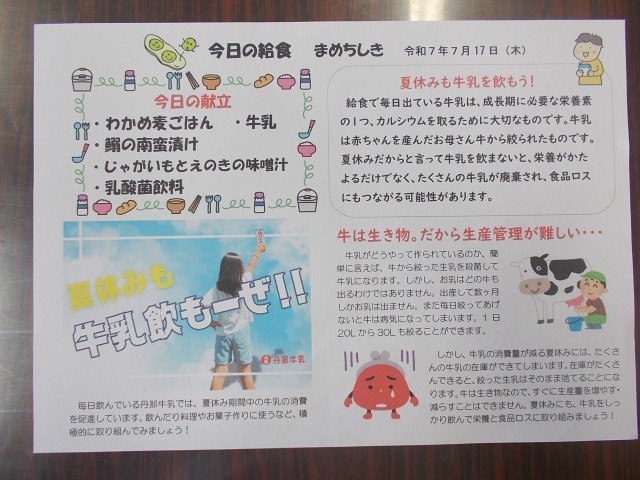 今日の給食 まめちしき 令和7年7月17日(木)
今日の献立
・わかめ麦ごはん ・牛乳
・鰯の南蛮漬け
・じゃがいもとえのきの味噌汁
・乳酸菌飲料
夏休みも牛乳を飲もう!
給食で毎日出ている牛乳は、成長期に必要な栄養素
の1つ、カルシウムを取るために大切なものです。牛乳
は赤ちゃんを産んだお母さん牛から絞られたものです。
夏休みだからと言って牛乳を飲まないと、栄養がかた
よるだけでなく、たくさんの牛乳が廃棄され、食品ロス
にもつながる可能性があります。
夏休みも
牛乳飲もーぜ!!
丹那牛乳
毎日飲んでいる丹那牛乳では、夏休み期間中の牛乳の消費
を促進しています。飲んだり料理やお菓子作りに使うなど、積
極的に取り組んでみましょう!
牛は生き物。だから生産管理が難しい・・・
牛乳がどうやって作られているのか、簡
単に言えば、牛から絞った生乳を殺菌して
牛乳になります。しかし、お乳はどの牛も
出るわけではありません。出産して数ヶ月
しかお乳は出ません。また毎日絞ってあげ
ないと牛は病気になってしまいます。1日
20Lから30Lも絞ることができます。
しかし、牛乳の消費量が減る夏休みには、たくさ
んの牛乳の在庫ができてしまいます。在庫がたくさ
んできると、絞った生乳はそのまま捨てることになり
ます。牛は生き物なので、すぐに生産量を増やす・
減らすことはできません。夏休みにも、牛乳をしっ
かり飲んで栄養と食品ロスに取り組みましょう!